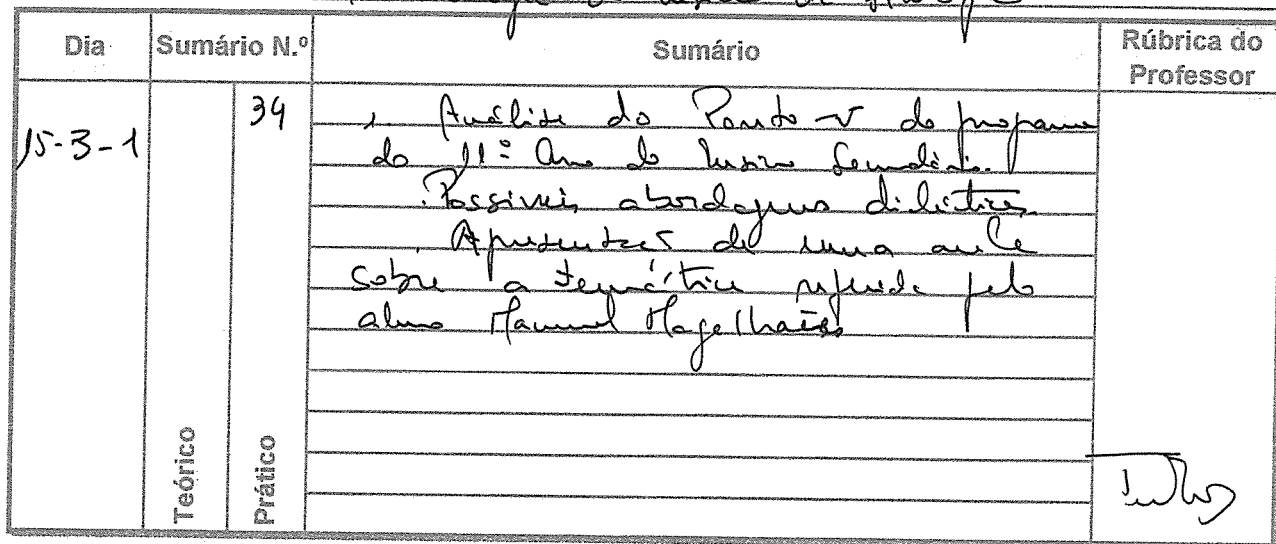 Dia Sumário N.º Sumário Rúbrica do Professor
15-3-1 34 . Análise do Ponto V do programa
do 11º Ano do Ensino Secundário.
. Possiveis abordagens didácticas
. Apresentação de uma aula
sobre a temática referida pelo
aluno Manuel Magalhães
Teórico Prático